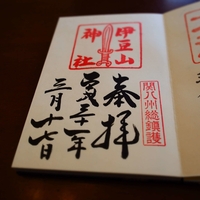 関八州総鎮護
奉拝
伊豆山
神社
平成三十一年
三月十七日